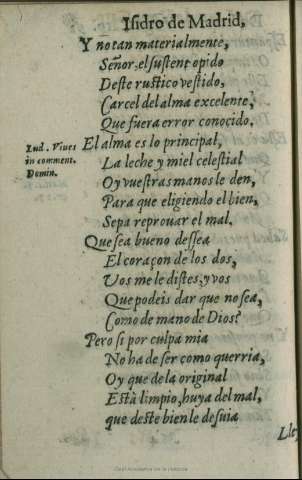 Isidro de Madrid,
Y no tan materialmente,
Señor, el sustent opido
Deste rustico vestido,
Carcel del alma excelente,
Que fuera error conocido.
El alma es lo principal,
Lud. Viues
in comment.
Domin.
La leche y miel celestial
Oy vuestras manos le den,
Para que eligiendo el bien,
Sepa reprouar el mal.
Que sea bueno dessea
El coraçon de los dos,
Vos me le distes, y vos
Que podeis dar que no sea,
Como de mano de Dios?
Pero si por culpa mia
No ha de ser como querria,
Oy que de la original
Està limpio, huya del mal,
que deste bien le desuia
Lle
Real Academia de la Historia